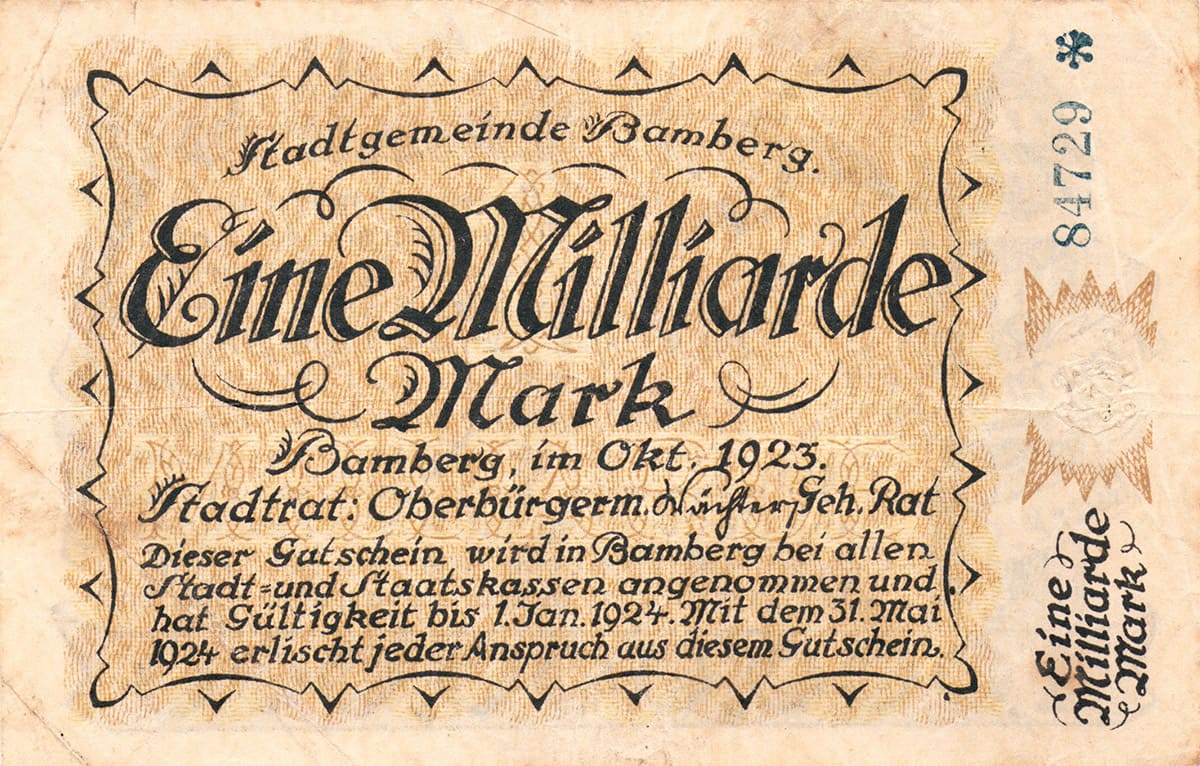 Stadtgemeinde Bamberg.
Eine Milliarde
Mark
Bamberg, im Okt. 1923.
Stadtrat: Oberbürgerm. Wächter Geh. Rat
Dieser Gutschein wird in Bamberg bei allen
Stadt=und Staatskassen angenommen und
hat Gültigkeit bis 1. Jan. 1924. Mit dem 31. Mai
1924 erlischt jeder Anspruch aus diesem Gutschein.
84729 *
Eine
Milliarde
Mark